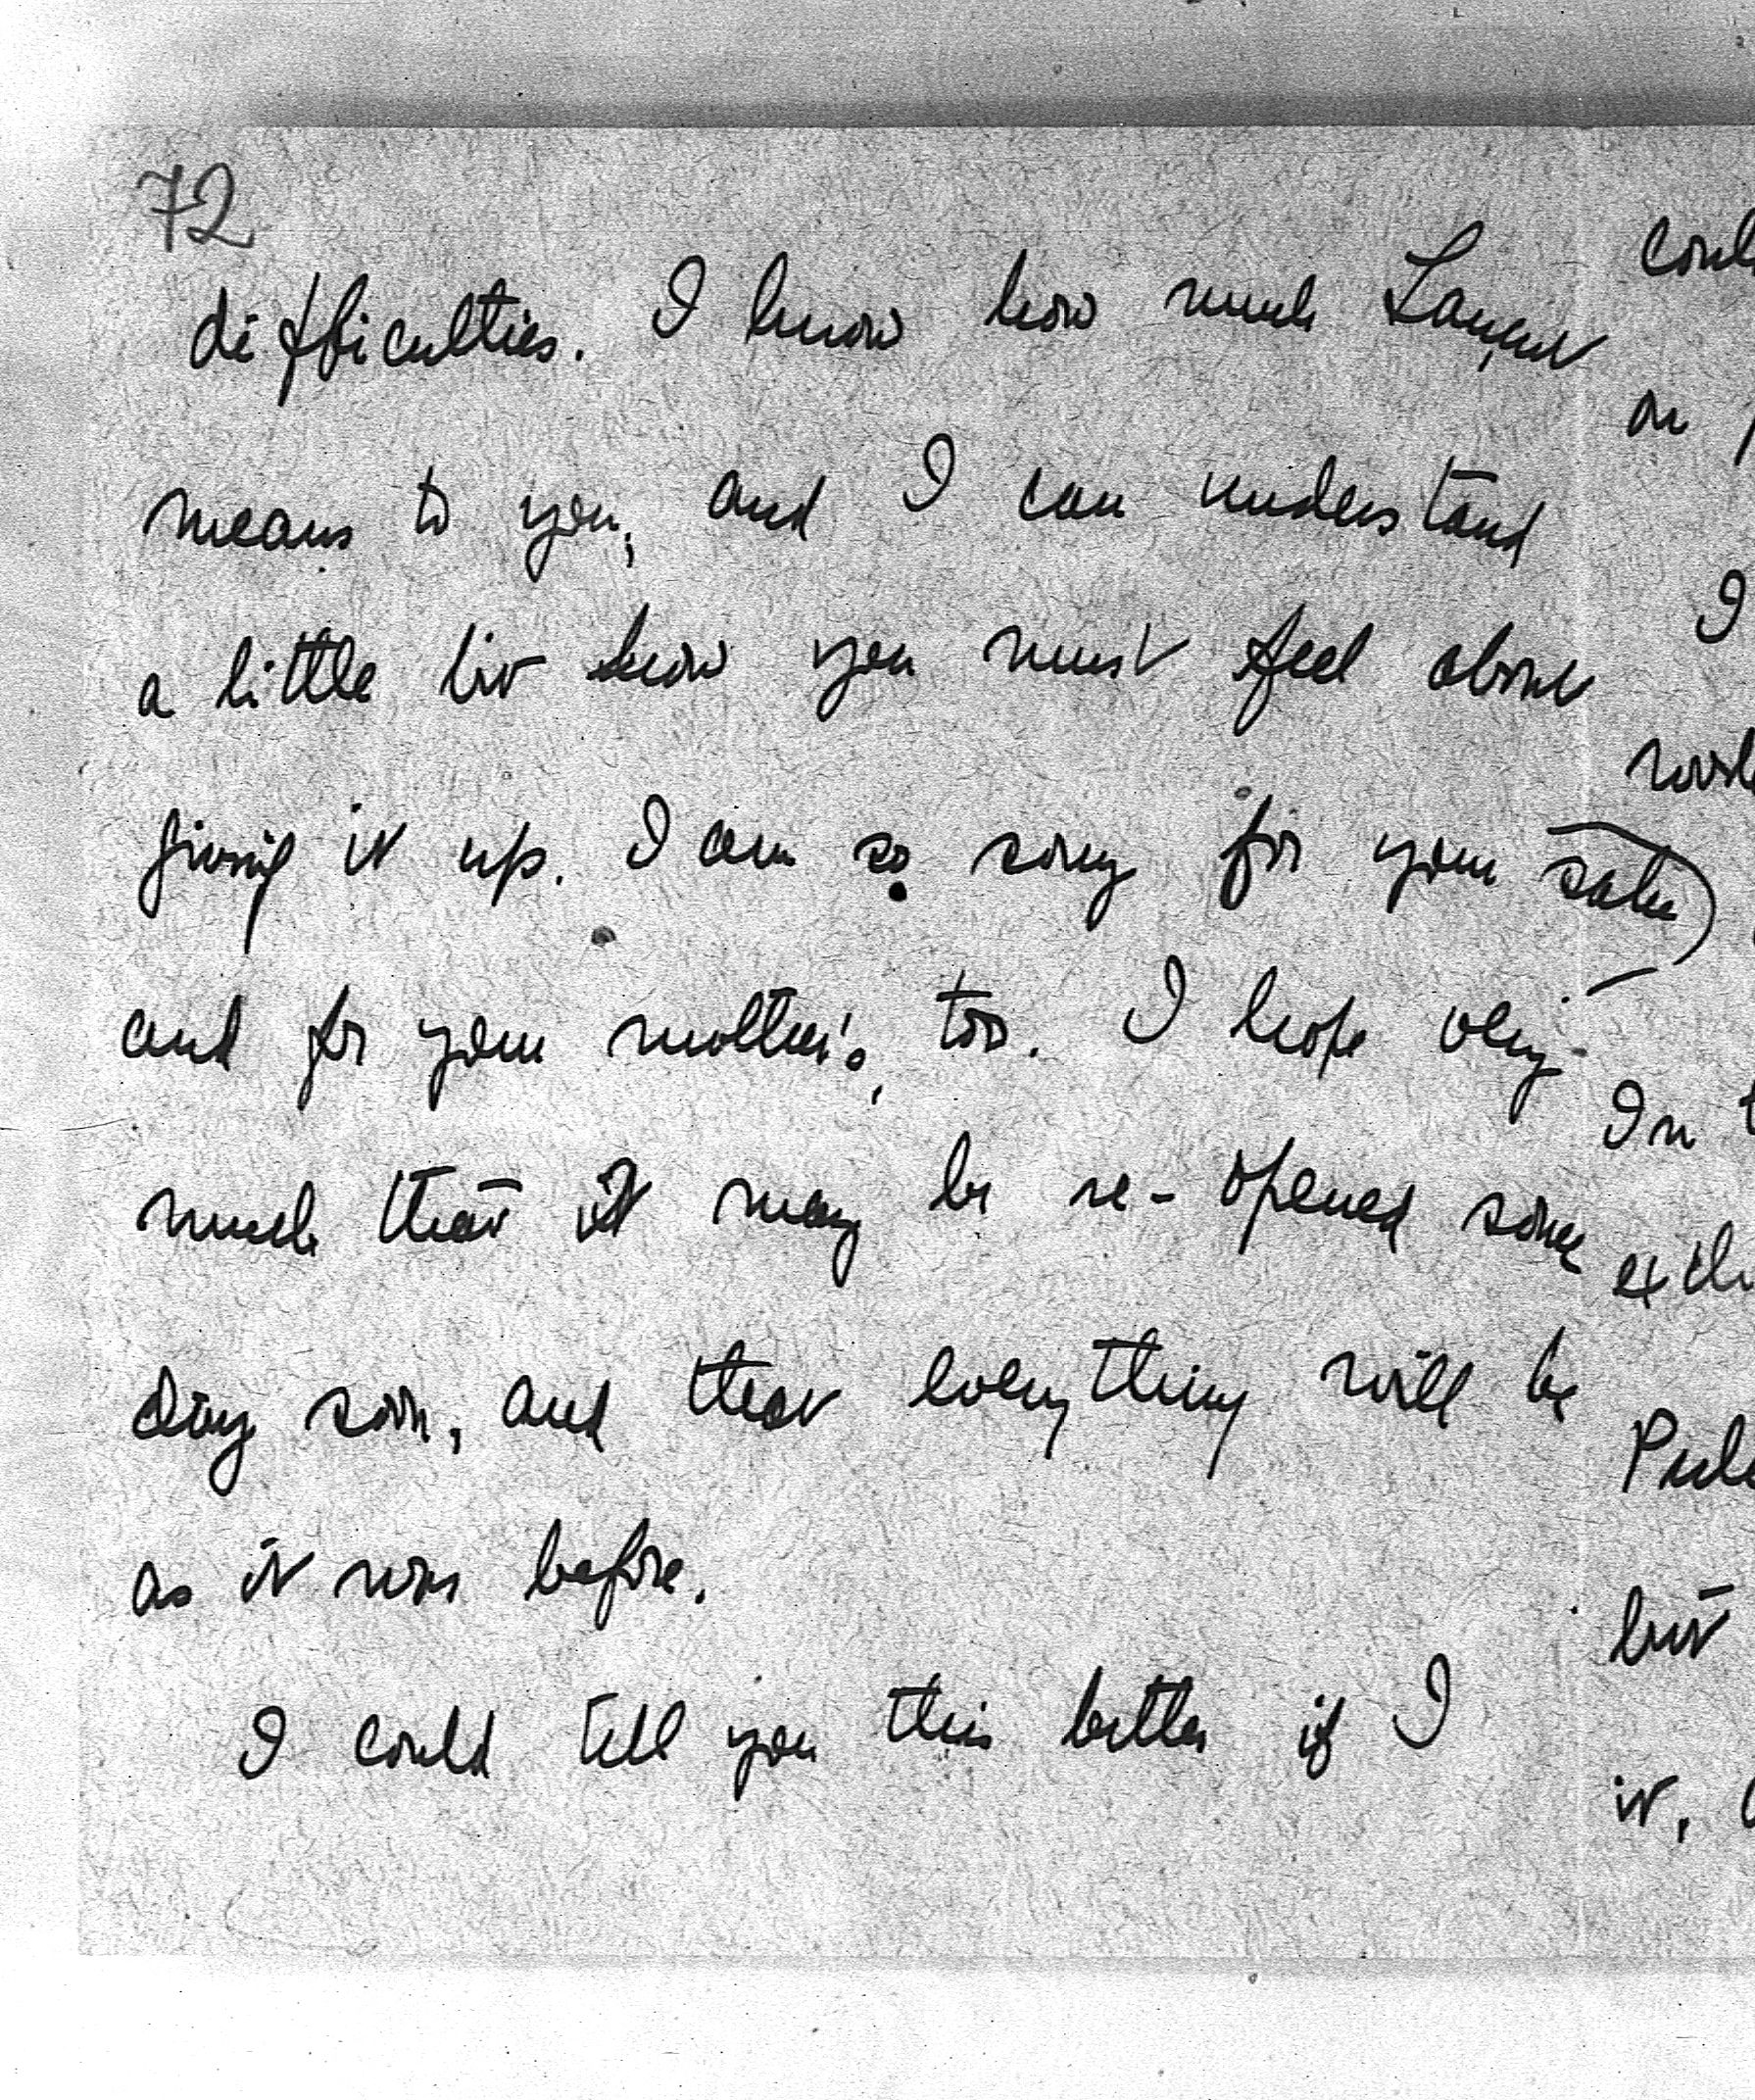 72
difficulties. I know how much
means to you, and I can understand
a little bit how you must feel about
giving it up. I am so sorry for your sake
and for your mother's, too. I hope very
much that it may be re-opened some
day soon, and that everything will be
as it was before.
I could tell you this better if I
on
I
In
but
it,